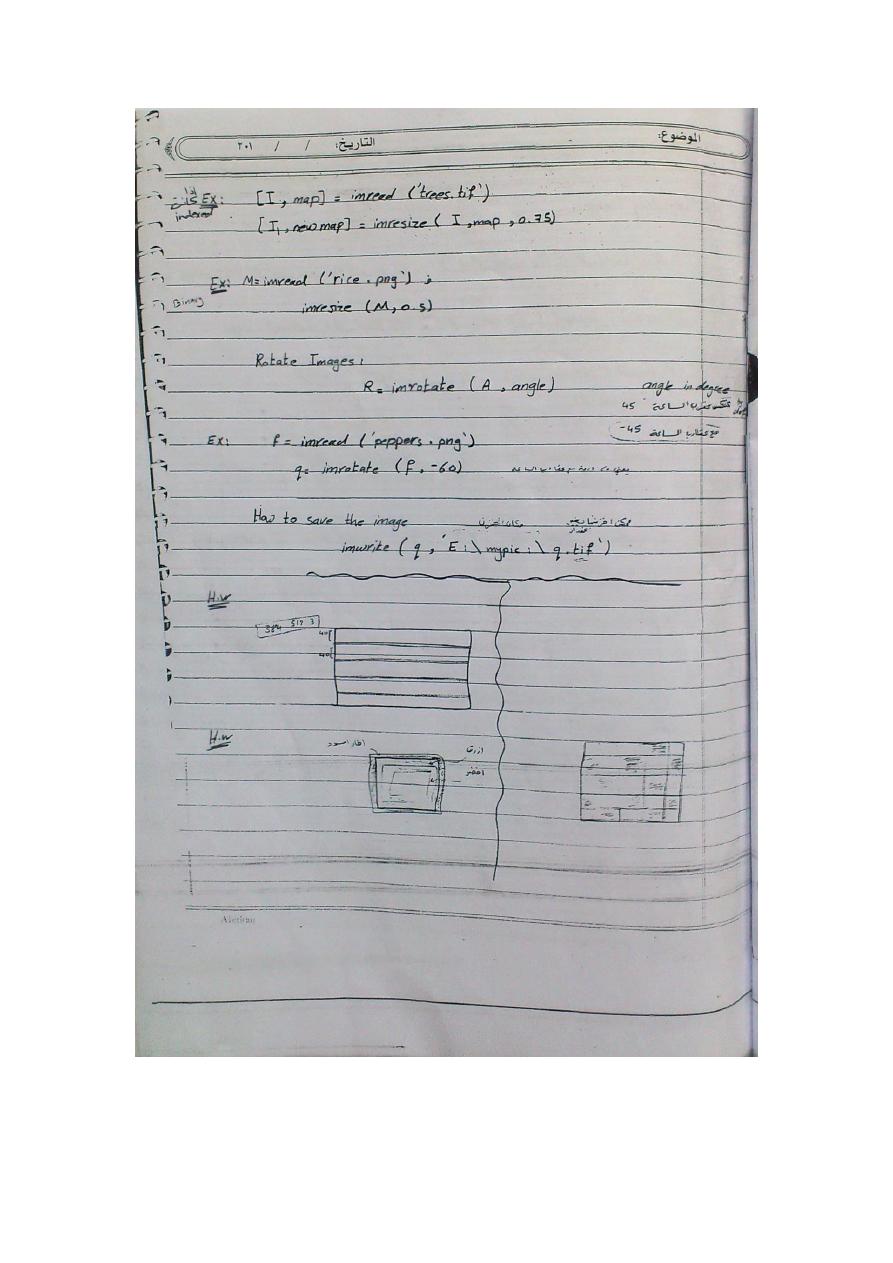 الموضوع: التاريخ: / / ٢٠١
إذا كانت Ex: [I, map] = imread ('trees.tif')
indexed [I1, newmap] = imresize ( I, map, 0.75)
Ex: M= imread ('rice.png') ;
Binary imresize (M, 0.5)
Rotate Images:
R= imrotate (A, angle) angle in degree
45 عكس عقرب الساعة
-45 مع عقارب الساعة
Ex: f= imread ('peppers.png')
q= imrotate (f, -60)
How to save the image مكان الخزن
imwrite ( q, 'E:\mypic:\q.tif')
H.w
384 512 3
40
40
H.w
اطار اسود ازرق
اخضر